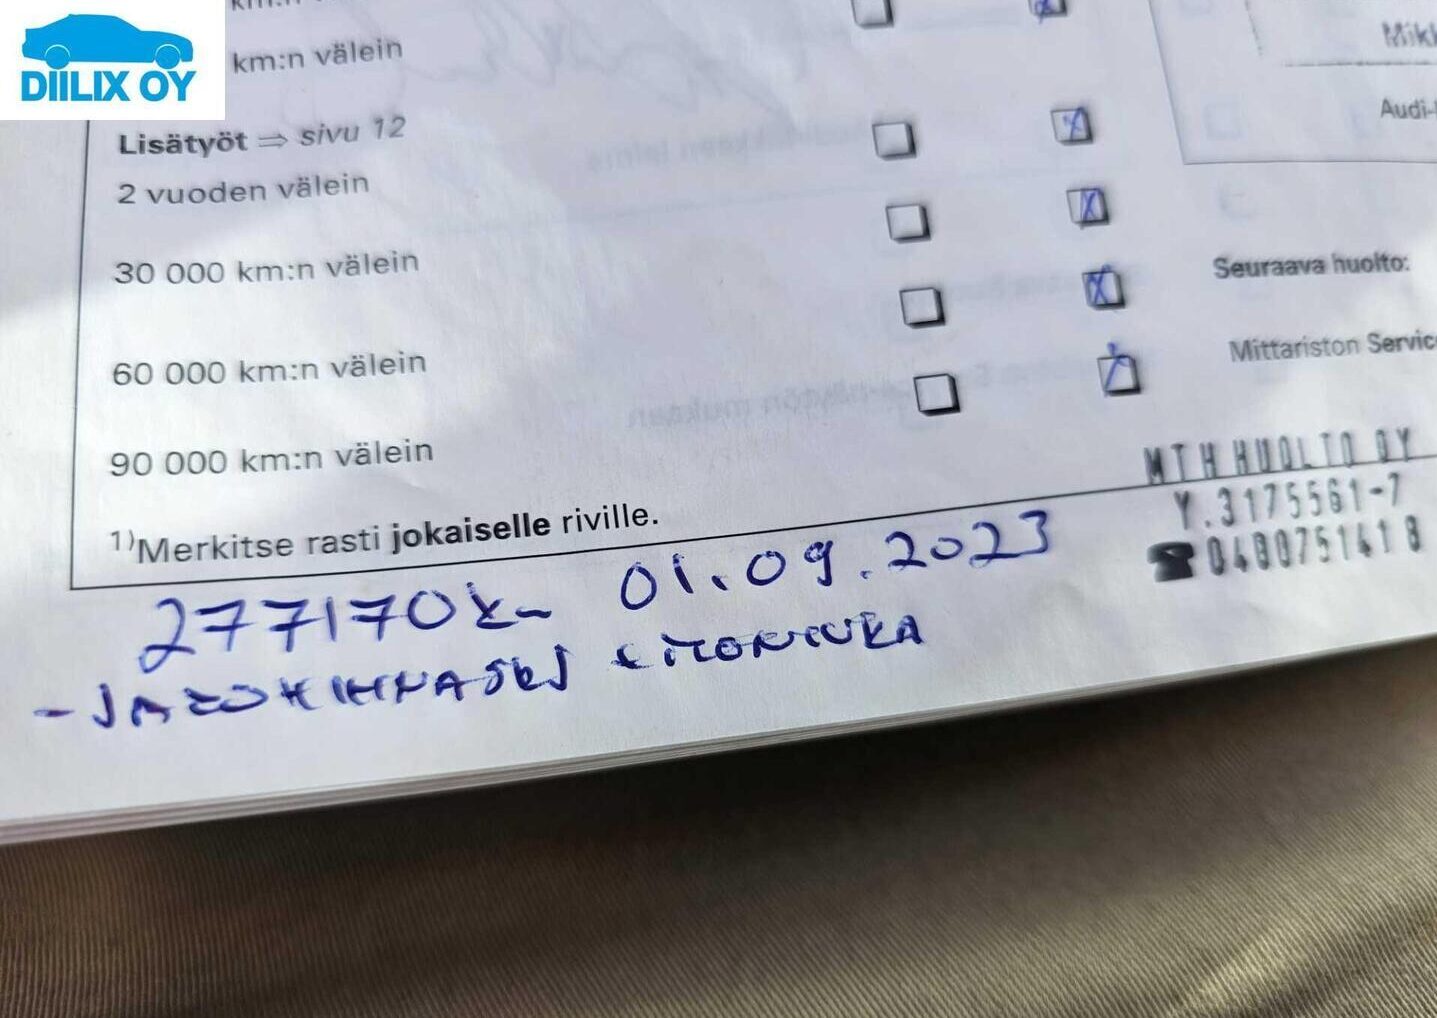 DIILIX OY
km:n välein
Lisätyöt ⇒ sivu 12
2 vuoden välein
30 000 km:n välein
60 000 km:n välein
90 000 km:n välein
1) Merkitse rasti jokaiselle riville.
Mikk
Audi-
Seuraava huolto:
Mittariston Servic
MTH HUOLTO OY
Y.3175561-7
☎0400751418
277170km 01.09.2023
- JAKOHIHNASRJ + MOOTTORI